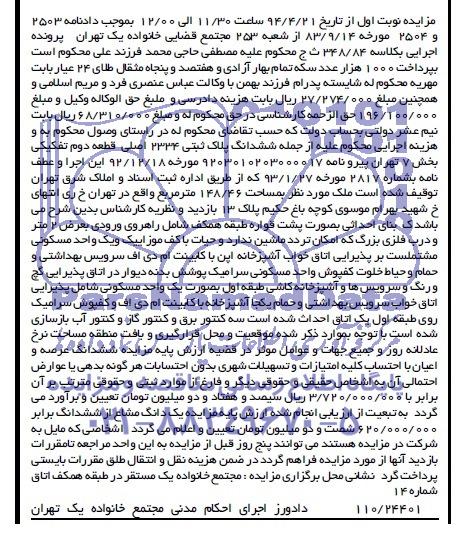 مزایده نوبت اول از تاریخ ۹۴/۴/۲۱ ساعت ۱۱/۳۰ الی ۱۲/۰۰ بموجب دادنامه ۲۵۰۳
و ۲۵۰۴ مورخه ۸۳/۹/۱۴ از شعبه ۲۵۳ مجتمع قضایی خانواده یک تهران پرونده
اجرایی بکلاسه ۳۴۸/۸۴ ث ج محکوم علیه مصطفی حاجی محمد فرزند علی محکوم است
بپرداخت ۱۰۰۰ هزار عدد سکه تمام بهار آزادی و هفتصد و پنجاه مثقال طلای ۲۴ عیار بابت
مهریه محکوم له شایسته پدرام فرزند بهمن با وکالت عباس عنصری فرد و مریم اسلامی و
همچنین مبلغ ۲۷/۲۷۴/۰۰۰ ریال بابت هزینه دادرسی و مبلغ حق الوکاله وکیل و مبلغ
۱۹۶/۱۰۰/۰۰۰ حق الزحمه کارشناسی در حق محکوم له و مبلغ ۶۸/۳۱۰/۰۰۰ ریال بابت
نیم عشر دولتی بحساب دولت که حسب تقاضای محکوم له در راستای وصول محکوم به و
هزینه اجرایی محکوم علیه از جمله ششدانگ پلاک ثبتی ۲۳۳۴ اصلی قطعه دوم تفکیکی
بخش ۷ تهران پیرو نامه ۹۲۰۳۰۱۰۲۰۳۰۰۰۰۱۷ مورخه ۹۲/۱۲/۱۸ این اجرا و عطف
نامه بشماره ۲۸۱۷ مورخه ۹۳/۱/۲۷ که از طریق اداره ثبت اسناد و املاک شرق تهران
توقیف شده است ملک مورد نظر بمساحت ۱۴۸/۴۶ مترمربع واقع در تهران خ ری انتهای
خ شهید بهرام موسوی کوچه باغ حکیم پلاک ۱۳ بازدید و نظریه کارشناس بدین شرح می
باشد ک بنای احداثی بصورت پشت قواره طبقه همکف شامل راهروی ورودی بعرض ۲ متر
و درب فلزی بزرگ که امکان تردد ماشین ندارد و حیاط با کف موزاییک ویک واحد مسکونی
مشتملست بر پذیرایی اتاق خواب آشپزخانه اپن با کابینت ام دی اف سرویس بهداشتی و
حمام وحیاط خلوت کفپوش واحد مسکونی سرامیک پوشش بدنه دیوار در اتاق پذیرایی گچ
و رنگ و سرویس ها و آشپزخانه کاشی طبقه اول بصورت یک واحد مسکونی شامل پذیرایی
اتاق خواب سرویس بهداشتی وحمام یکجا آشپزخانه با کابینت ام دی اف و کفپوش سرامیک
روی طبقه اول یک اتاق احداث شده است سه کنتور برق و کنتور گاز و کنتور آب بازسازی
شده است با توجه بموارد ذکر شده موقعیت و محل قرارگیری و بافت منطقه مساحت نرخ
عادلانه روز و جمیع جهات و عوامل موثر در قضیه ارزش پایه مزایده ششدانگ عرصه و
اعیان با احتساب کلیه امتیازات و تسهیلات شهری بدون احتسابات هر گونه بدهی یا عوارض
احتمالی آن به اشخاص حقیقی و حقوقی دیگر و فارغ از موارد ثبتی و حقوقی مترتب بر آن
برابر با ۳/۷۲۰/۰۰۰/۰۰۰ ریال سیصد و هفتاد و دو میلیون تومان تعیین و برآورد می
گردد به تبعیت از ارزیابی انجام شده ارزش پایه مزایده یک دانگ مشاع از ششدانگ برابر
۶۲۰/۰۰۰/۰۰۰ شصت و دو میلیون تومان تعیین و اعلام می گردد اشخاصی که مایل به
شرکت در مزایده هستند می توانند پنج روز قبل از مزایده به این واحد مراجعه تا مقررات
بازدید آنها از مورد مزایده فراهم گردد در ضمن هزینه نقل و انتقال طلق مقررات بایستی
پرداخت گرد نشانی محل برگزاری مزایده : مجتمع خانواده یک مستقر در طبقه همکف اتاق
شماره ۱۴
۱۱۰/۲۴۴۰۱ دادورز اجرای احکام مدنی مجتمع خانواده یک تهران